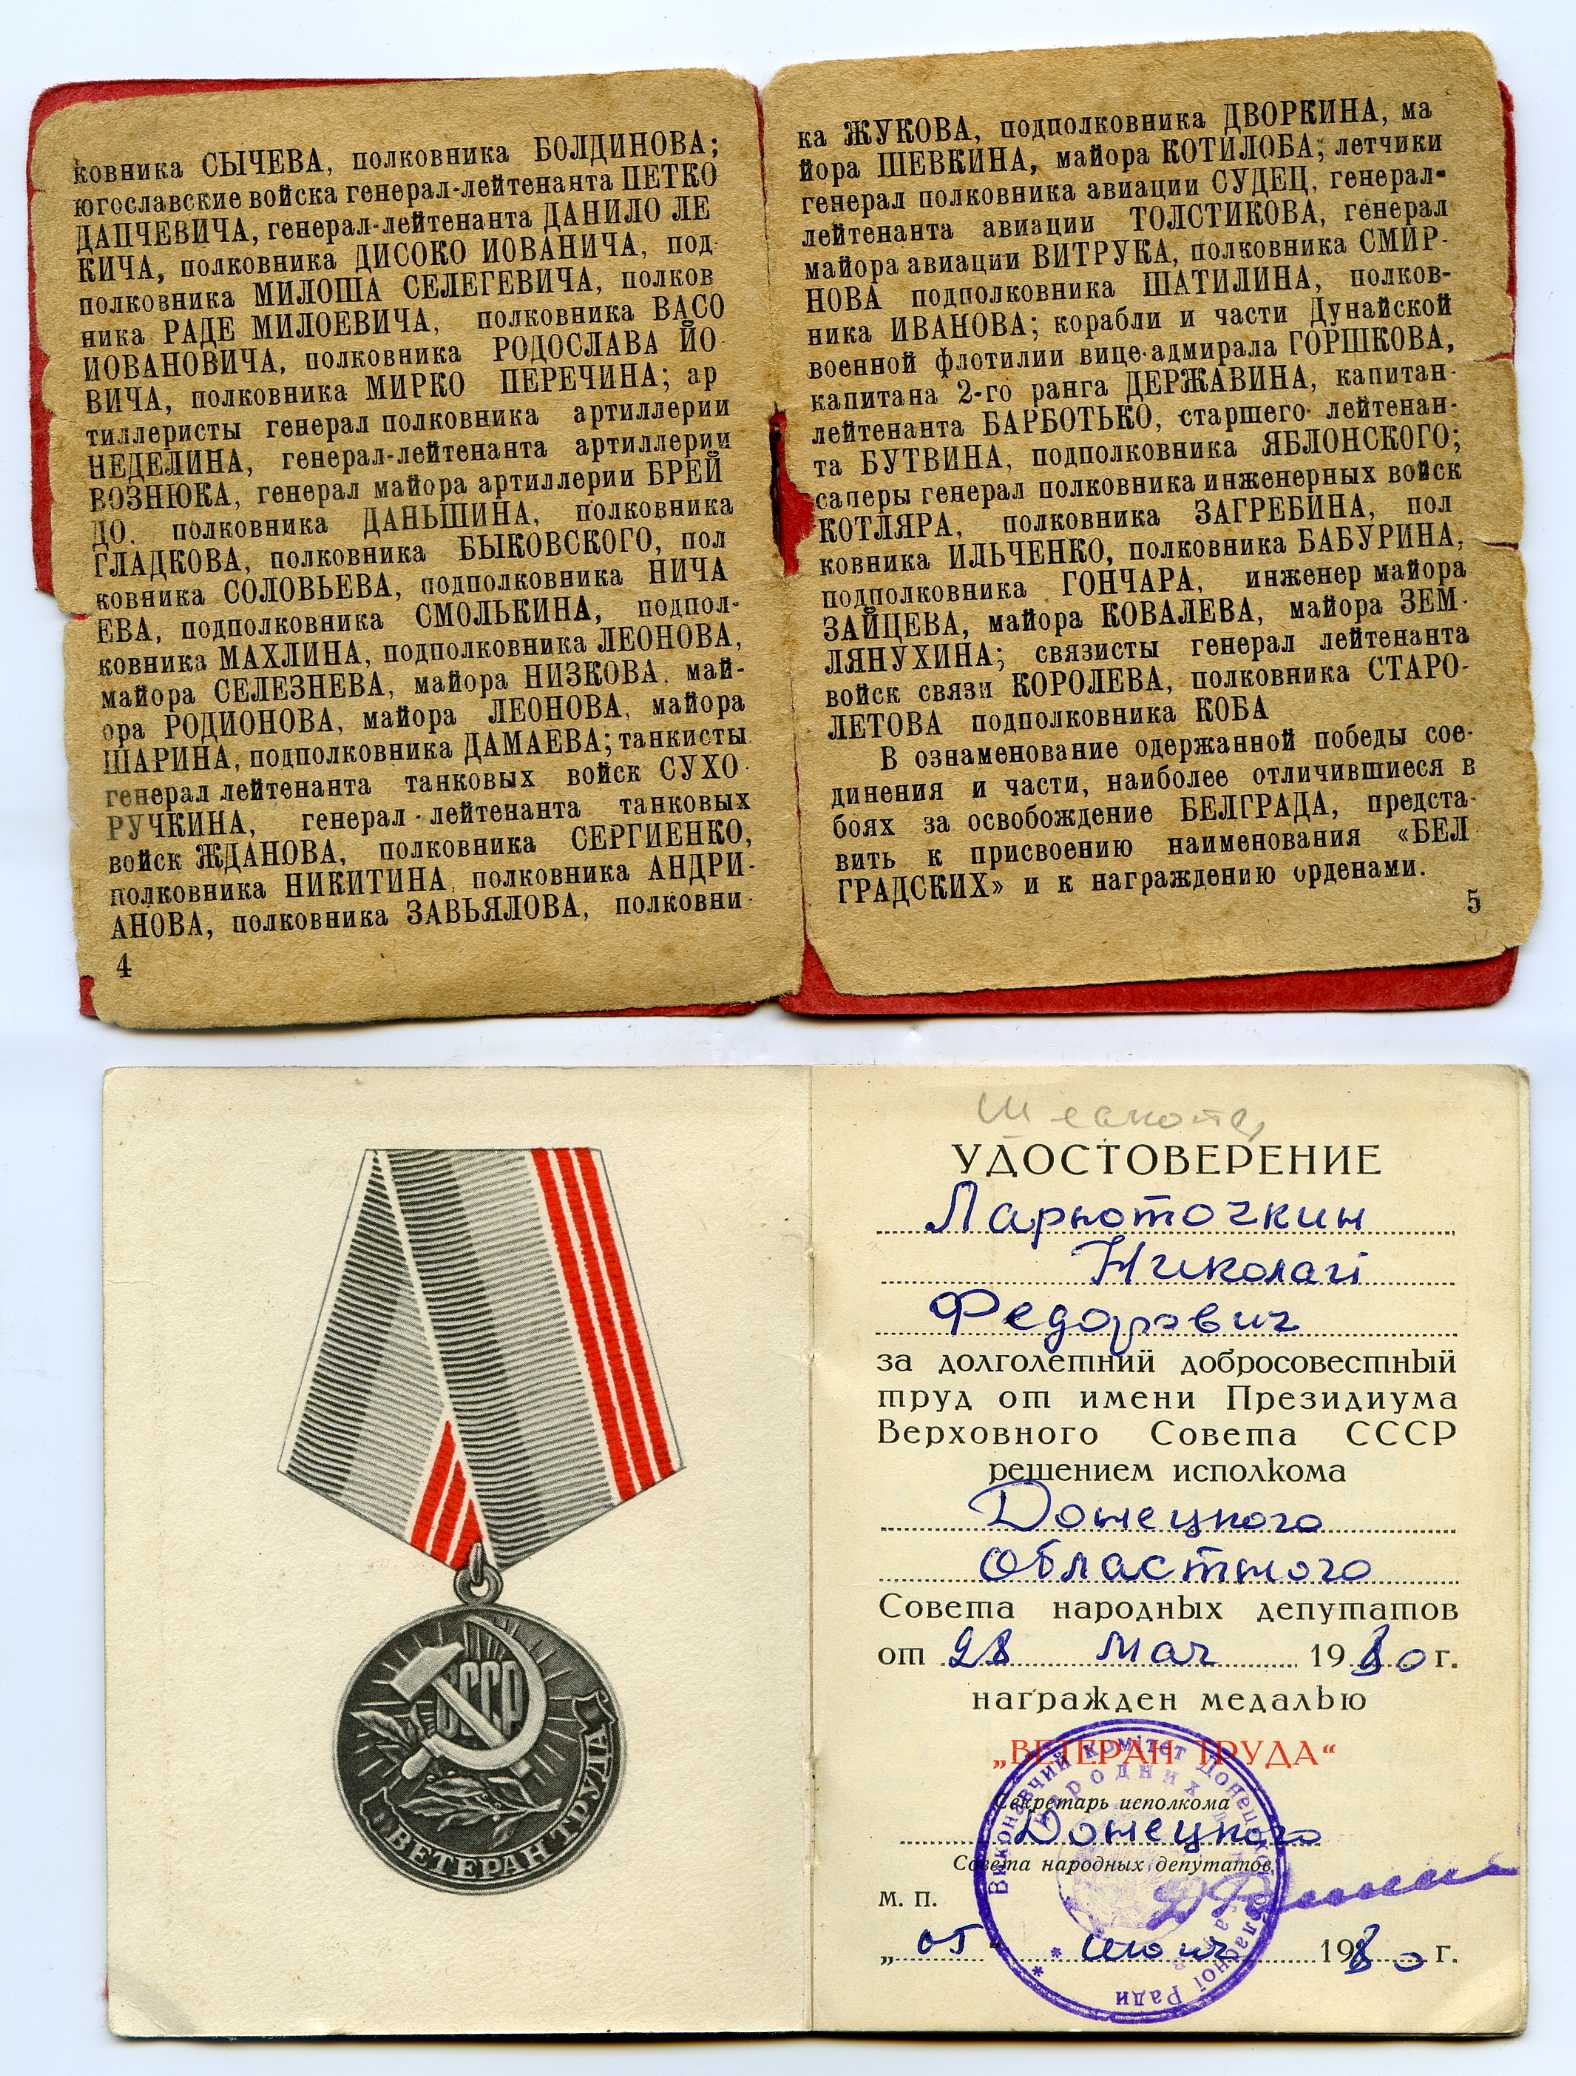 ковника СЫЧЕВА, полковника БОЛДИНОВА;
югославские войска генерал-лейтенанта ПЕТКО
ДАПЧЕВИЧА, генерал-лейтенанта ДАНИЛО ЛЕ
КИЧА, полковника ДИСОКО ИОВАНИЧА, под-
полковника МИЛОША СЕЛЕГЕВИЧА, полков
ника РАДЕ МИЛОЕВИЧА, полковника ВАСО
ИОВАНОВИЧА, полковника РОДОСЛАВА ЙО
ВИЧА, полковника МИРКО ПЕРЕЧИНА; ар
тиллеристы генерал полковника артиллерии
НЕДЕЛИНА, генерал-лейтенанта артиллерии
ВОЗНЮКА, генерал майора артиллерии БРЕЙ
ДО, полковника ДАНЬШИНА, полковника
ГЛАДКОВА, полковника БЫКОВСКОГО, пол
ковника СОЛОВЬЕВА, подполковника НИЧА
ЕВА, подполковника СМОЛЬКИНА, подпол-
ковника МАХЛИНА, подполковника ЛЕОНОВА,
майора СЕЛЕЗНЕВА, майора НИЗКОВА, май-
ора РОДИОНОВА, майора ЛЕОНОВА, майора
ШАРИНА, подполковника ДАМАЕВА; танкисты
генерал лейтенанта танковых войск СУХО-
РУЧКИНА, генерал-лейтенанта танковых
войск ЖДАНОВА, полковника СЕРГИЕНКО,
полковника НИКИТИНА, полковника АНДРИ-
АНОВА, полковника ЗАВЬЯЛОВА, полковни-
4
ка ЖУКОВА, подполковника ДВОРКИНА, ма
йора ШЕВКИНА, майора КОТИЛОБА; летчики
генерал полковника авиации СУДЕЦ, генерал-
лейтенанта авиации ТОЛСТИКОВА, генерал
майора авиации ВИТРУКА, полковника СМИР-
НОВА подполковника ШАТИЛИНА, полков-
ника ИВАНОВА; корабли и части Дунайской
военной флотилии вице-адмирала ГОРШКОВА,
капитана 2-го ранга ДЕРЖАВИНА, капитан-
лейтенанта БАРБОТЬКО, старшего лейтенан-
та БУТВИНА, подполковника ЯБЛОНСКОГО;
саперы генерал полковника инженерных войск
КОТЛЯРА, полковника ЗАГРЕБИНА, пол
ковника ИЛЬЧЕНКО, полковника БАБУРИНА,
подполковника ГОНЧАРА, инженер майора
ЗАЙЦЕВА, майора КОВАЛЕВА, майора ЗЕМ-
ЛЯНУХИНА; связисты генерал лейтенанта
войск связи КОРОЛЕВА, полковника СТАРО-
ЛЕТОВА подполковника КОБА
В ознаменование одержанной победы сое-
динения и части, наиболее отличившиеся в
боях за освобождение БЕЛГРАДА, предста-
вить к присвоению наименования «БЕЛ
ГРАДСКИХ» и к награждению орденами.
5
УДОСТОВЕРЕНИЕ
Ларюточкин
Николай
Федорович
за долголетний добросовестный
труд от имени Президиума
Верховного Совета СССР
решением исполкома
Донецкого
областного
Совета народных депутатов
от 28 мая 1980 г.
награжден медалью
„ВЕТЕРАН ТРУДА“
Секретарь исполкома
Донецкого
Совета народных депутатов
М. П.
„05“ июня 1980 г.
Виконавчий комітет Донецької обласної Ради
народних депутатів
СССР
ВЕТЕРАН ТРУДА